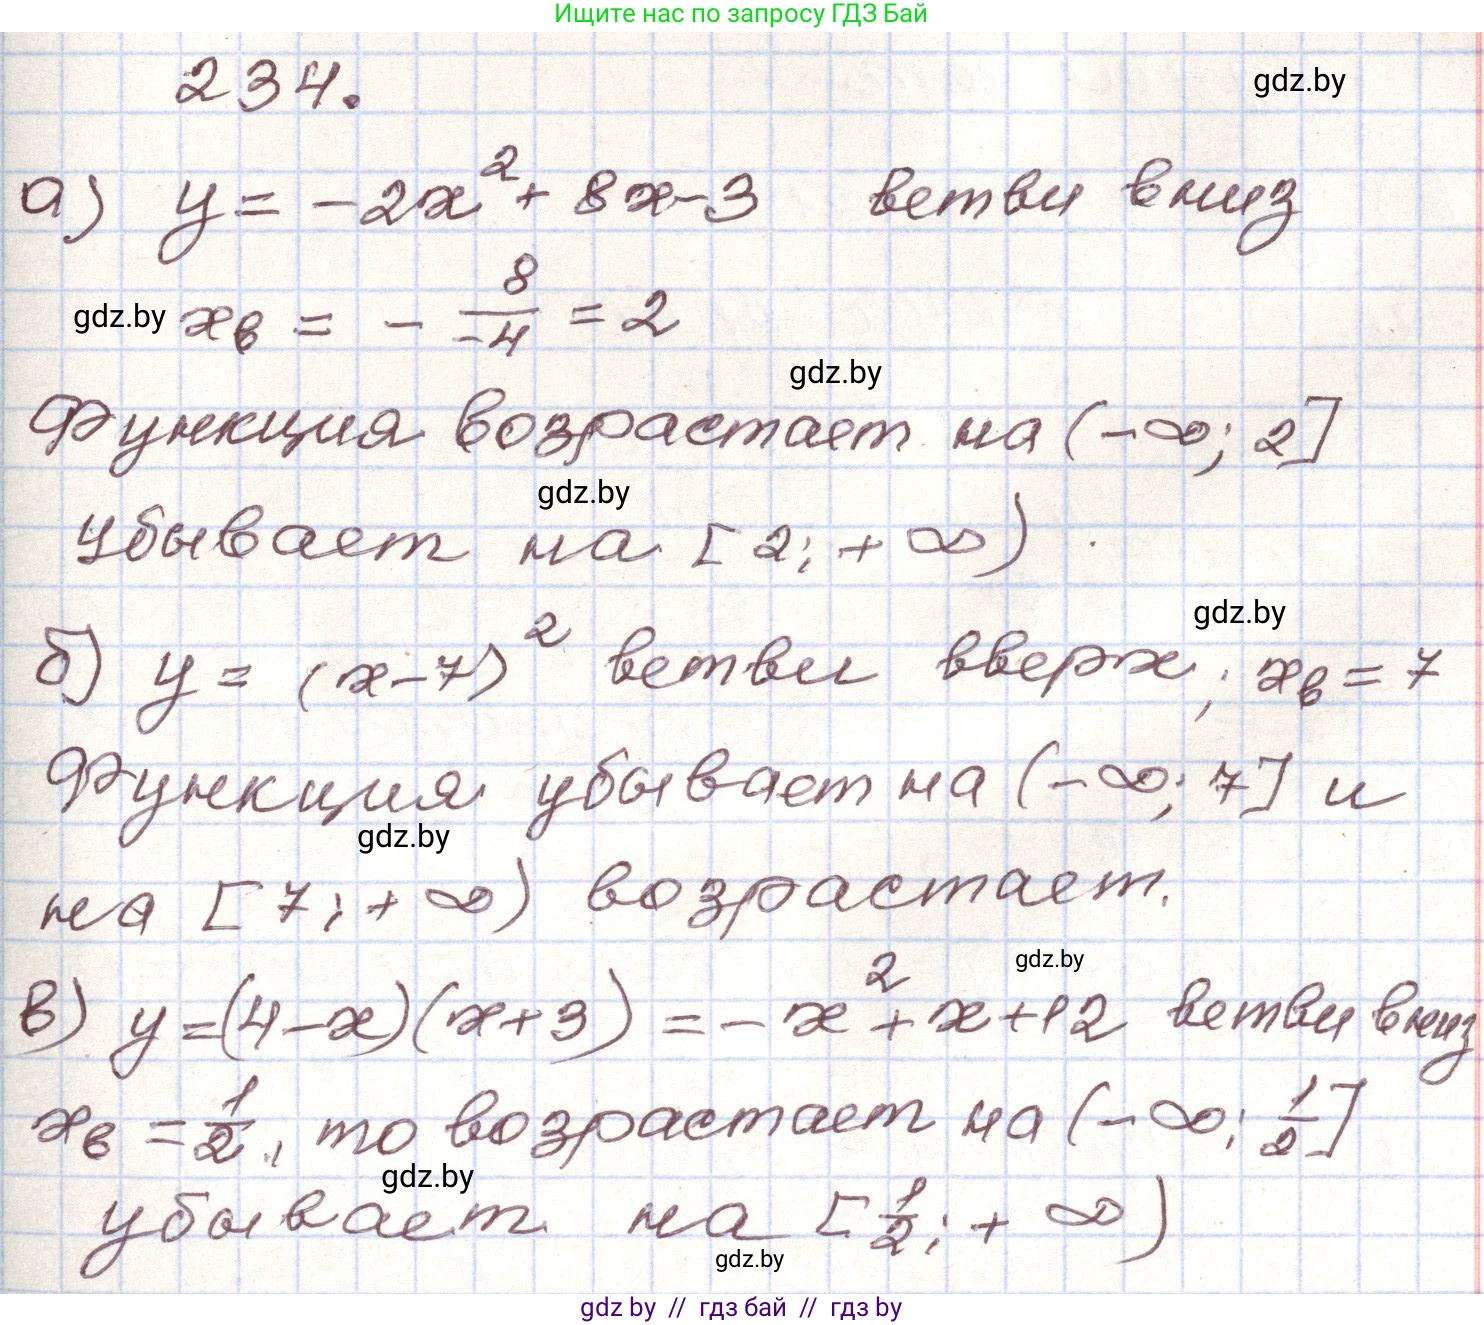 Ищите нас по запросу ГДЗ Бай
234.
gdz.by
а) y = -2x² + 8x - 3 ветви вниз
gdz.by xв = - 8/-4 = 2
gdz.by
Функция возрастает на (-∞; 2]
gdz.by
убывает на [2; +∞)
gdz.by
б) y = (x-7)² ветви вверх; xв = 7
Функция убывает на (-∞; 7] и
gdz.by
на [7; +∞) возрастает.
gdz.by
в) y = (4-x)(x+3) = -x² + x + 12 ветви вниз
xв = 1/2, то возрастает на (-∞; 1/2]
gdz.by
убывает на [1/2; +∞)
gdz.by
gdz.by // гдз бай // гдз by